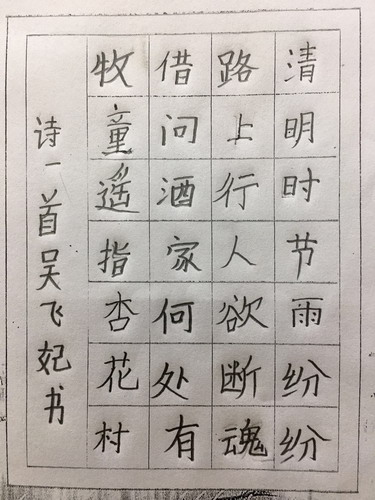 清明时节雨纷纷
路上行人欲断魂
借问酒家何处有
牧童遥指杏花村
诗一首吴飞妃书